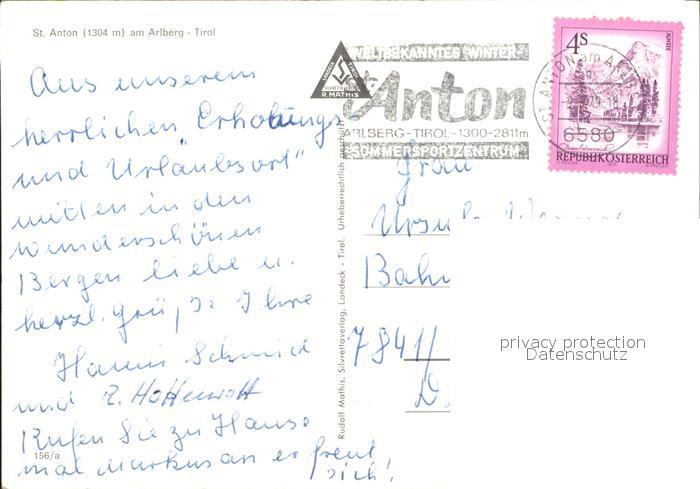 St. Anton (1304 m) am Arlberg - Tirol
Aus unserem
herrlichen Erholungs-
und Urlaubsort"
mitten in den
wunderschönen
Bergen liebe u.
herzl. Grüße Ihre
Hanni Schmid
und R.
Rufen Sie zu Hause
mal Markus an er freut
sich!
156/a
Rudolf Mathis, Silvrettaverlag, Landeck - Tirol. Urheberrechtlich geschützt
R. MATHIS
WELTBEKANNTES WINTER-
St. Anton
ARLBERG-TIROL-1300-2811m
SOMMERSPORTZENTRUM
ST. ANTON am
6580
4s
ALMSEE
REPUBLIK ÖSTERREICH
Frau
Bahn
7841/
privacy protection
Datenschutz